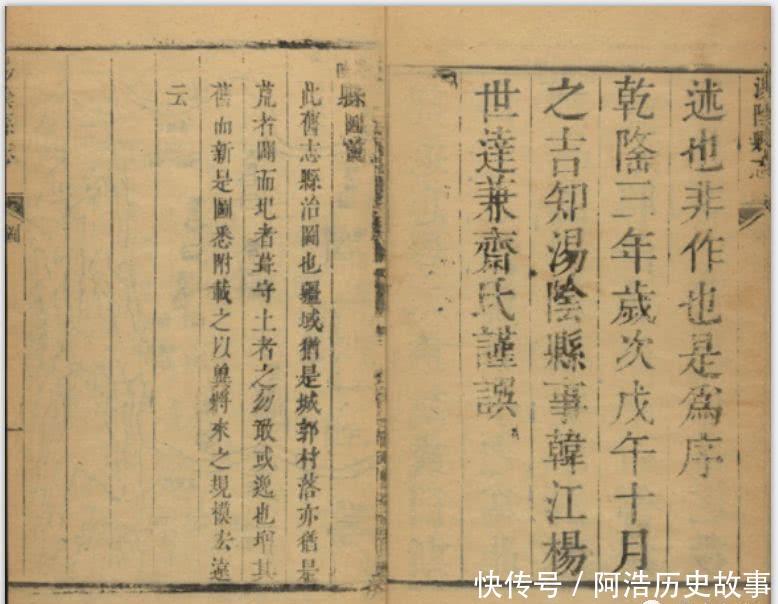 湯陰縣志
述也非作也是爲序
乾隆三年歲次戊午十月
之吉知湯陰縣事韓江楊
世達兼齋氏謹譔
縣圖
此舊志縣治圖也疆域猶是城郭村落亦猶是
荒者闢而圮者葺守土者之勿敢或逸也增其
舊而新是圖悉附載之以冀將來之規模宏遠
云
湯陰縣志
圖
一
快传号 / 阿浩历史故事